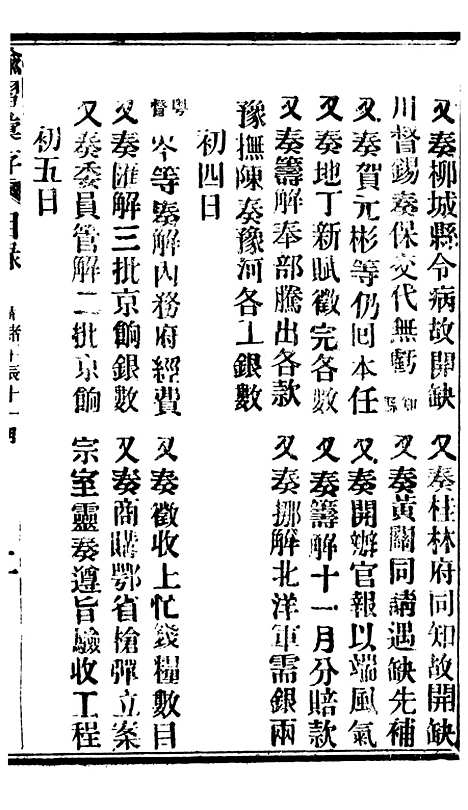 又奏柳城縣令病故開缺
又奏桂林府同知故開缺
川督錫奏保交代無虧知縣
又奏黃閣同請遇缺先補
又奏賀元彬等仍囘本任
又奏開辦官報以端風氣
又奏地丁新賦徵完各數
又奏籌解十一月分賠款
又奏籌解奉部騰出各款
又奏挪解北洋軍需銀兩
豫撫陳奏豫河各工銀數
初四日
粵督岑等奏解內務府經費
又奏徵收上忙錢糧數目
又奏匯解三批京餉銀數
又奏商購鄂省槍彈立案
又奏委員管解二批京餉
宗室靈奏遵旨驗收工程
初五日
諭摺彙存目錄
光緒甲辰十一月